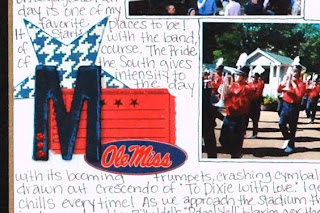 day is one of my
favorite places to be!
It starts with the band,
of course. The Pride
of the South gives
intensity to
the day
M
Ole Miss
with its booming trumpets, crashing cymbals
drawn out crescendo of "To Dixie with love." I get
chills every time! As we approach the stadium th